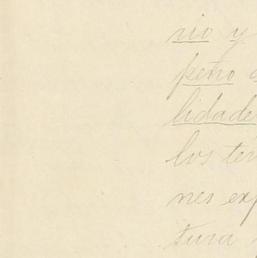 rio y
peño
lidade
los ter
nes exp
tura